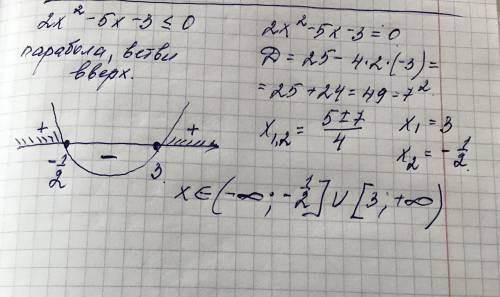 2x² - 5x - 3 ≤ 0
парабола, ветви
вверх.
2x² - 5x - 3 = 0
Д = 25 - 4·2·(-3) =
= 25 + 24 = 49 = 7².
x₁,₂ = (5 ± 7)/4
x₁ = 3
x₂ = -1/2.
+ - +
-1/2 3
x ∈ (-∞; -1/2] ∪ [3; +∞)